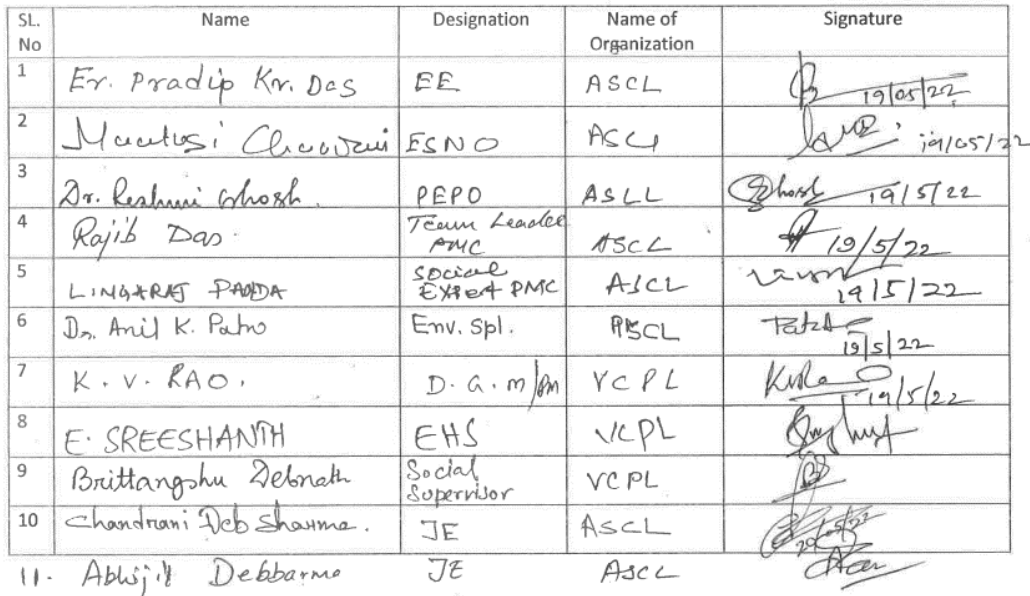 SL. No Name Designation Name of Organization Signature
1 Er. Pradip Kr. Das EE ASCL 19/05/22
2 ESNO ASCL 19/05/22
3 Dr. Reshmi Ghosh. PEPO ASLL Ghosh 19/5/22
4 Rajib Das. Team Leader PMC ASCL 19/5/22
5 LINGARAJ PANDA Social Expert PMC ASCL 19/5/22
6 Dr. Anil K. Patro Env. Spl. ASCL 19/5/22
7 K. V. RAO. D.G.m/pm VCPL 19/5/22
8 E. SREESHANTH EHS VCPL
9 Brittangshu Debnath Social Supervisor VCPL
10 Chandrani Deb Sharma. JE ASCL 20/05/22
11. Abhijit Debbarma JE ASCL